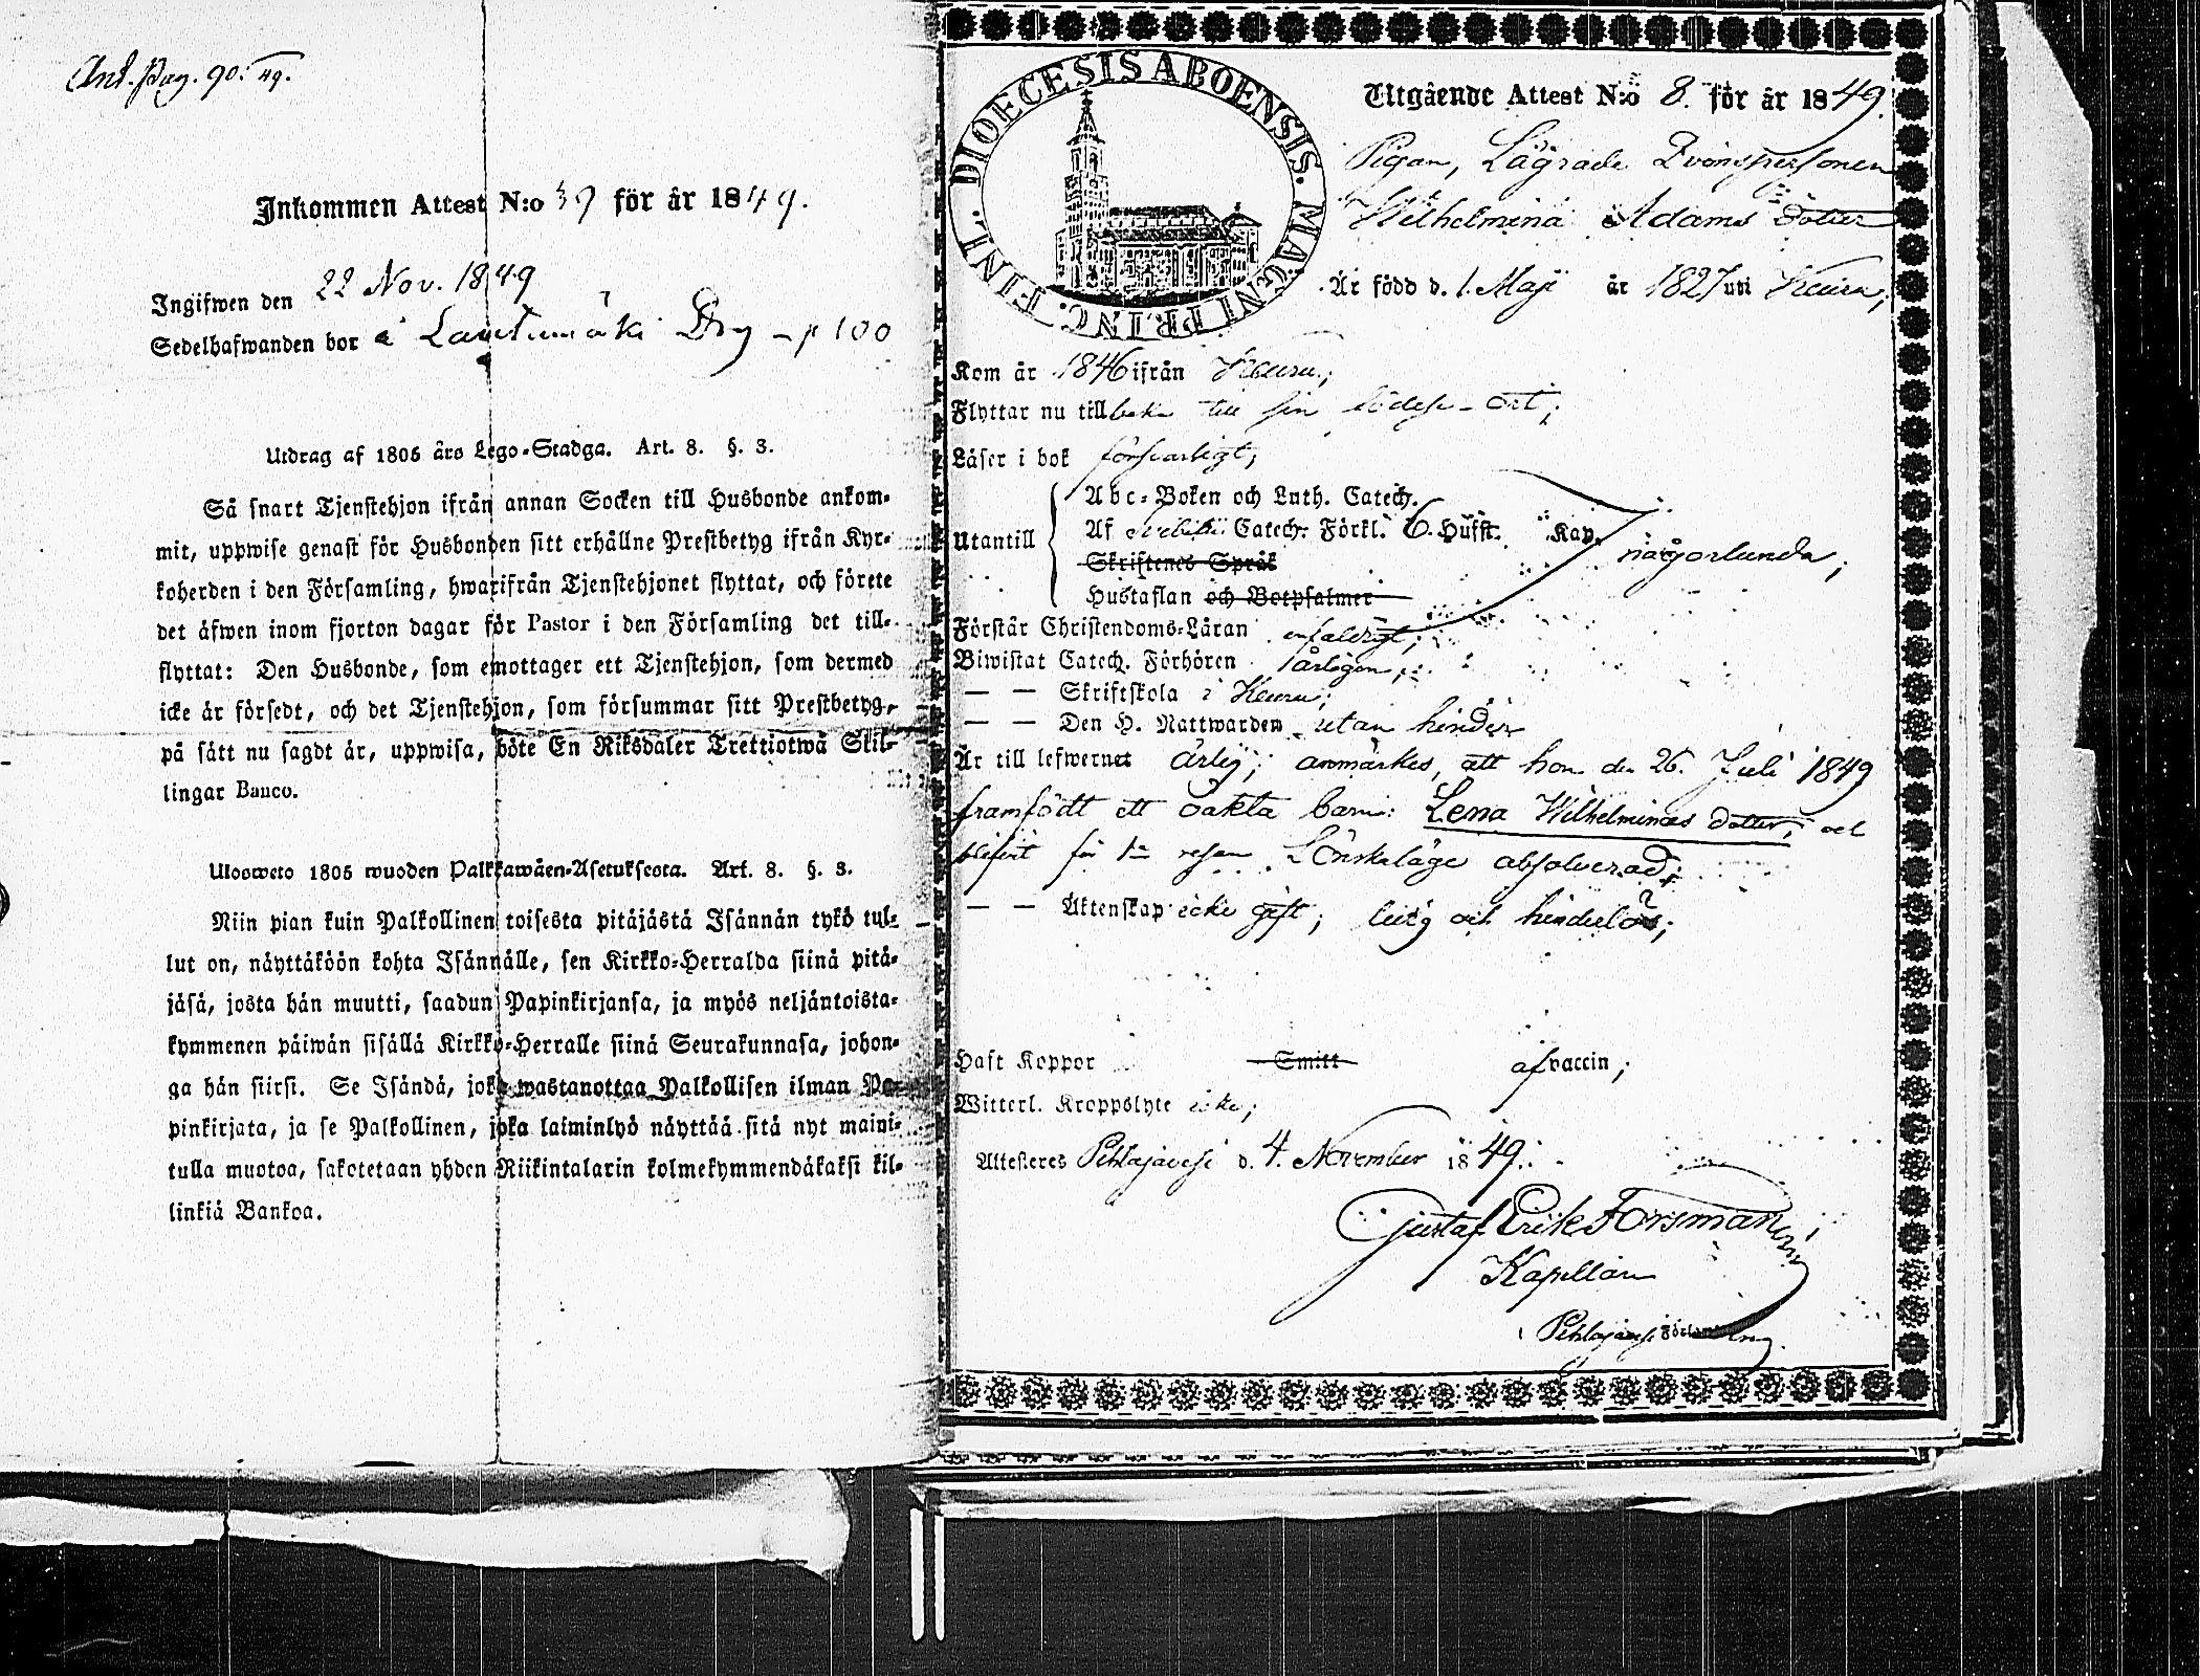 Ant. Pag. 90. 49.
Inkommen Attest N:o 39 för år 1849.
Ingifwen den 22 Nov. 1849
Sedelhafwanden bor à Lautamäki Drg – p 100
Utdrag af 1805 års Lego-Stadga. Art. 8. §. 3.
Så snart Tjenstehjon ifrån annan Socken till Husbonde ankom-
mit, uppwise genast för Husbonden sitt erhållne Prestbetyg ifrån Kyr-
koherden i den Församling, hwarifrån Tjenstehjonet flyttat, och förete
det äfwen inom fjorton dagar för Pastor i den Församling det till-
flyttat: Den Husbonde, som emottager ett Tjenstehjon, som dermed
icke är försedt, och det Tjenstehjon, som försummar sitt Prestbetyg,
på sätt nu sagdt är, uppwisa, böte En Riksdaler Trettiotwå Skil-
lingar Banco.
Ulosweto 1805 wuoden Palkkawäen-Asetuksesta. Art. 8. §. 3.
Niin pian kuin Palkollinen toisesta pitäjästä Isännän tykö tul-
lut on, näyttäköön kohta Isännälle, sen Kirkko-Herralda siinä pitä-
jäsä, josta hän muutti, saadun Papinkirjansa, ja myös neljäntoista-
kymmenen päiwän sisällä Kirkko-Herralle siinä Seurakunnasa, johon-
ga hän siirsi. Se Isändä, joka wastanottaa Palkollisen ilman Pa-
pinkirjata, ja se Palkollinen, joka laiminlyö näyttää sitä nyt maini-
tulla muotoa, sakotetaan yhden Riikintalarin kolmekymmendäkaksi kil-
linkiä Bankoa.
DIOECESIS ABOENSIS. MAGNI PRINC. FINL.
Utgående Attest N:o 8. för år 1849.
Pigan, Lägrade Qvinspersonen
Wilhelmina Adams dotter
Är född d. 1. Maji år 1827 uti Keuru;
Kom år 1846 ifrån Keuru;
Flyttar nu tillbaka till sin födelse-ort;
Läser i bok försvarligt;
Utantill
Abc-Boken och Luth. Catech.
Af Svebilii Catech. Förkl. 6. Hufst. Kap.
Skriftenes Språk
Hustaflan och Botpsalmer
någorlunda;
Förstår Christendoms-Läran enfaldigt;
Biwistat Catech. Förhören årligen;
— — Skriftskola i Keuru;
— — Den H. Nattwarden utan hinder
Är till lefwernet ärlig; anmärkes, att hon den 26. Juli 1849
framfödt ett oäkta barn: Lena Wilhelminas dotter, och
blifvit för 1a resan Lönskaläge absolverad;
— — Äktenskap icke gift; ledig och hinderlös;
Haft Koppor Smitt af vaccin;
Witterl. Kroppslyte icke;
Attesteres Pihlajavesi d. 4. November 1849.
Gustaf Erik Forsman
Kapellan
i Pihlajavesi Församling